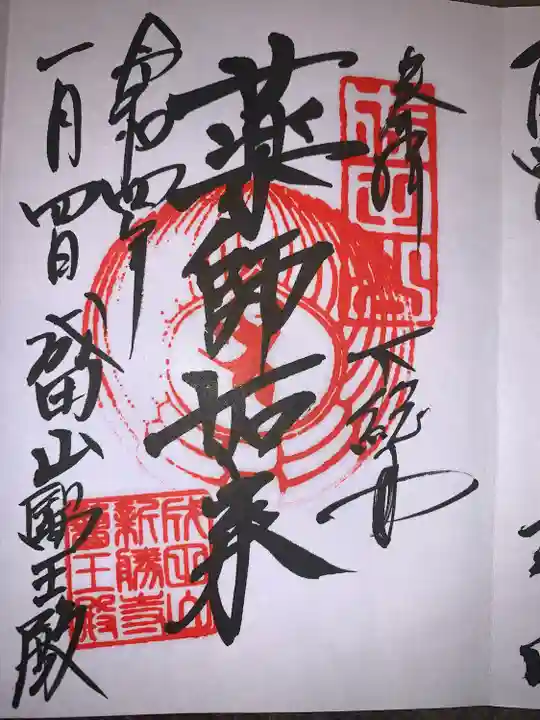 奉拝
下総国
薬師如来
令和四年
一月四日 成田山醫王殿
成田山
成田山
新勝寺
醫王殿